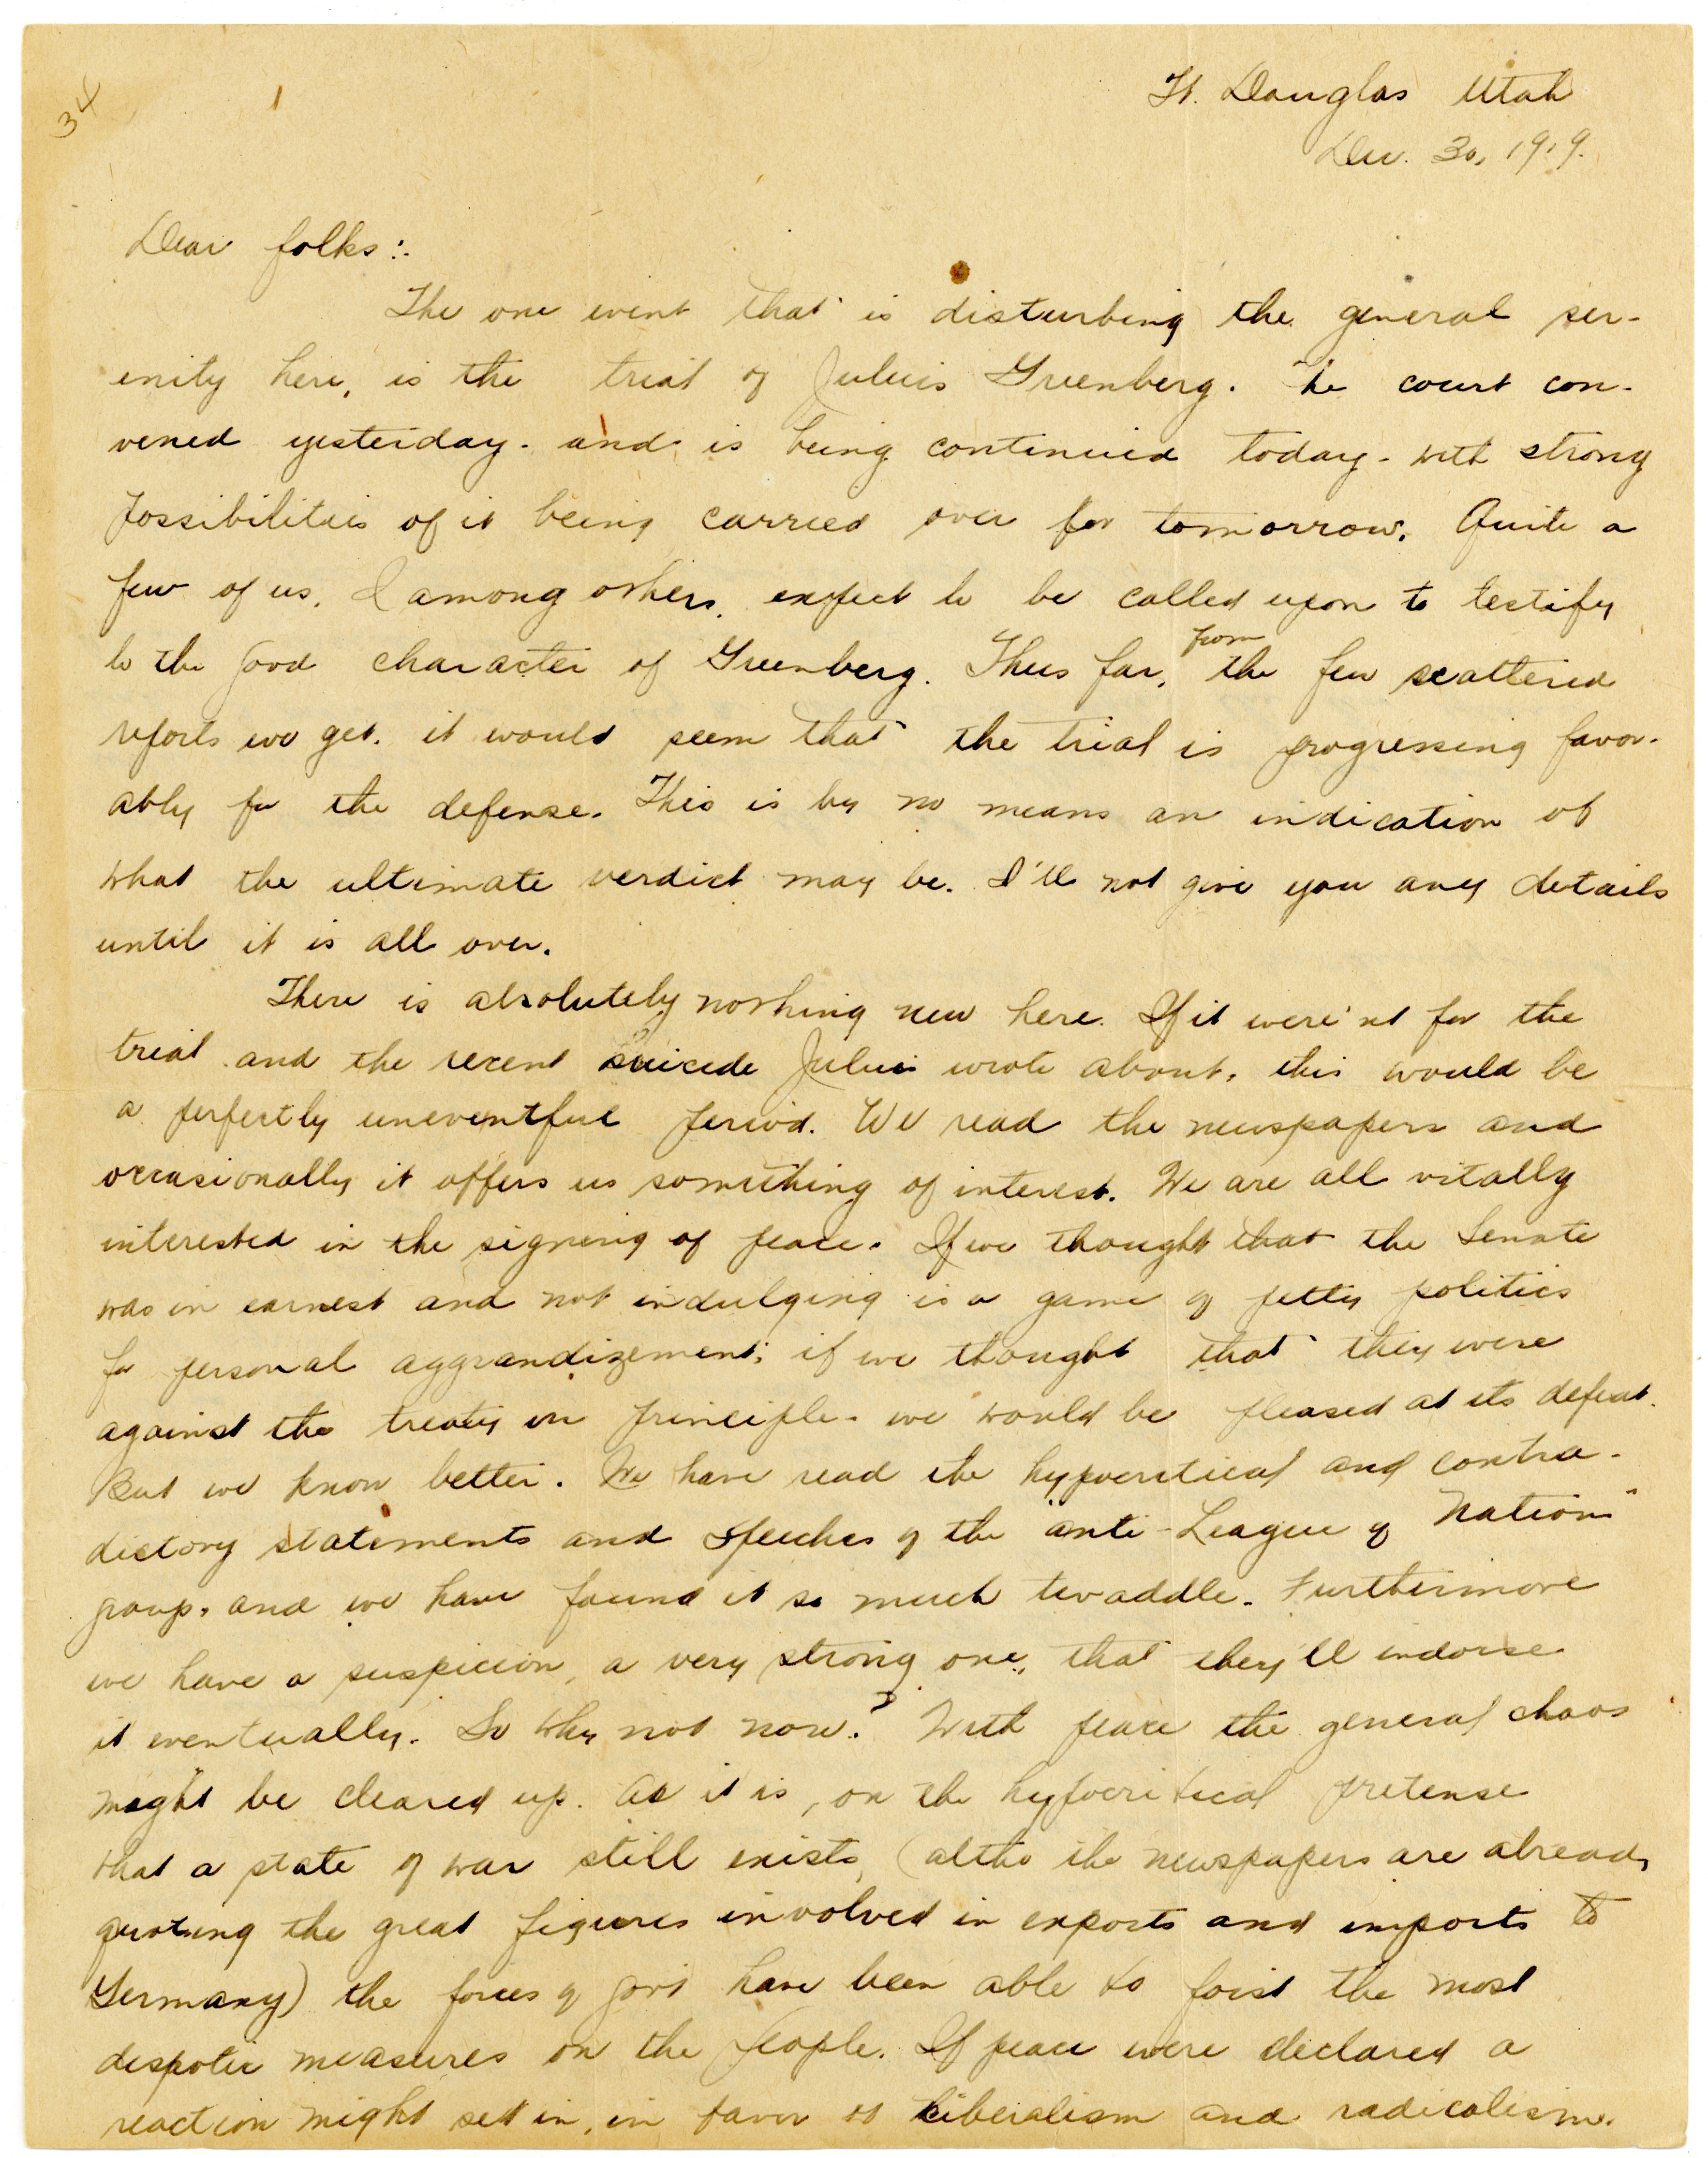 34
1
Ft. Douglas Utah
Dec. 30, 1919.
Dear folks:
The one event that is disturbing the general ser-
enity here, is the trial of Julius Greenberg. The court con-
vened yesterday. and is being continued today - with strong
possibilities of it being carried over for tomorrow. Quite a
few of us, I among others, expect to be called upon to testify
to the good character of Greenberg. Thus far, from the few scattered
reports we get, it would seem that the trial is progressing favor-
ably for the defense. This is by no means an indication of
what the ultimate verdict may be. I'll not give you any details
until it is all over.
There is absolutely nothing new here. If it were'nt for the
trial and the recent suicide Julius wrote about, this would be
a perfectly uneventful period. We read the newspapers and
occasionally it offers us something of interest. We are all vitally
interested in the signing of peace. If we thought that the Senate
was in earnest and not indulging is a game of petty politics
for personal aggrandizement; if we thought that they were
against the treaty in principle - we would be pleased at its defeat.
But we know better. We have read the hypocritical and contra-
dictory statements and speeches of the "anti-League of Nations"
group, and we have found it so much twaddle. Furthermore
we have a suspicion, a very strong one, that they'll indorse
it eventually. So why not now? With peace the general chaos
might be cleared up. As it is, on the hypocritical pretense
that a state of war still exists, (altho the newspapers are already
quoting the great figures involved in exports and imports to
Germany) the forces of gov't have been able to foist the most
despotic measures on the people. If peace were declared a
reaction might set in, in favor of liberalism and radicalism.